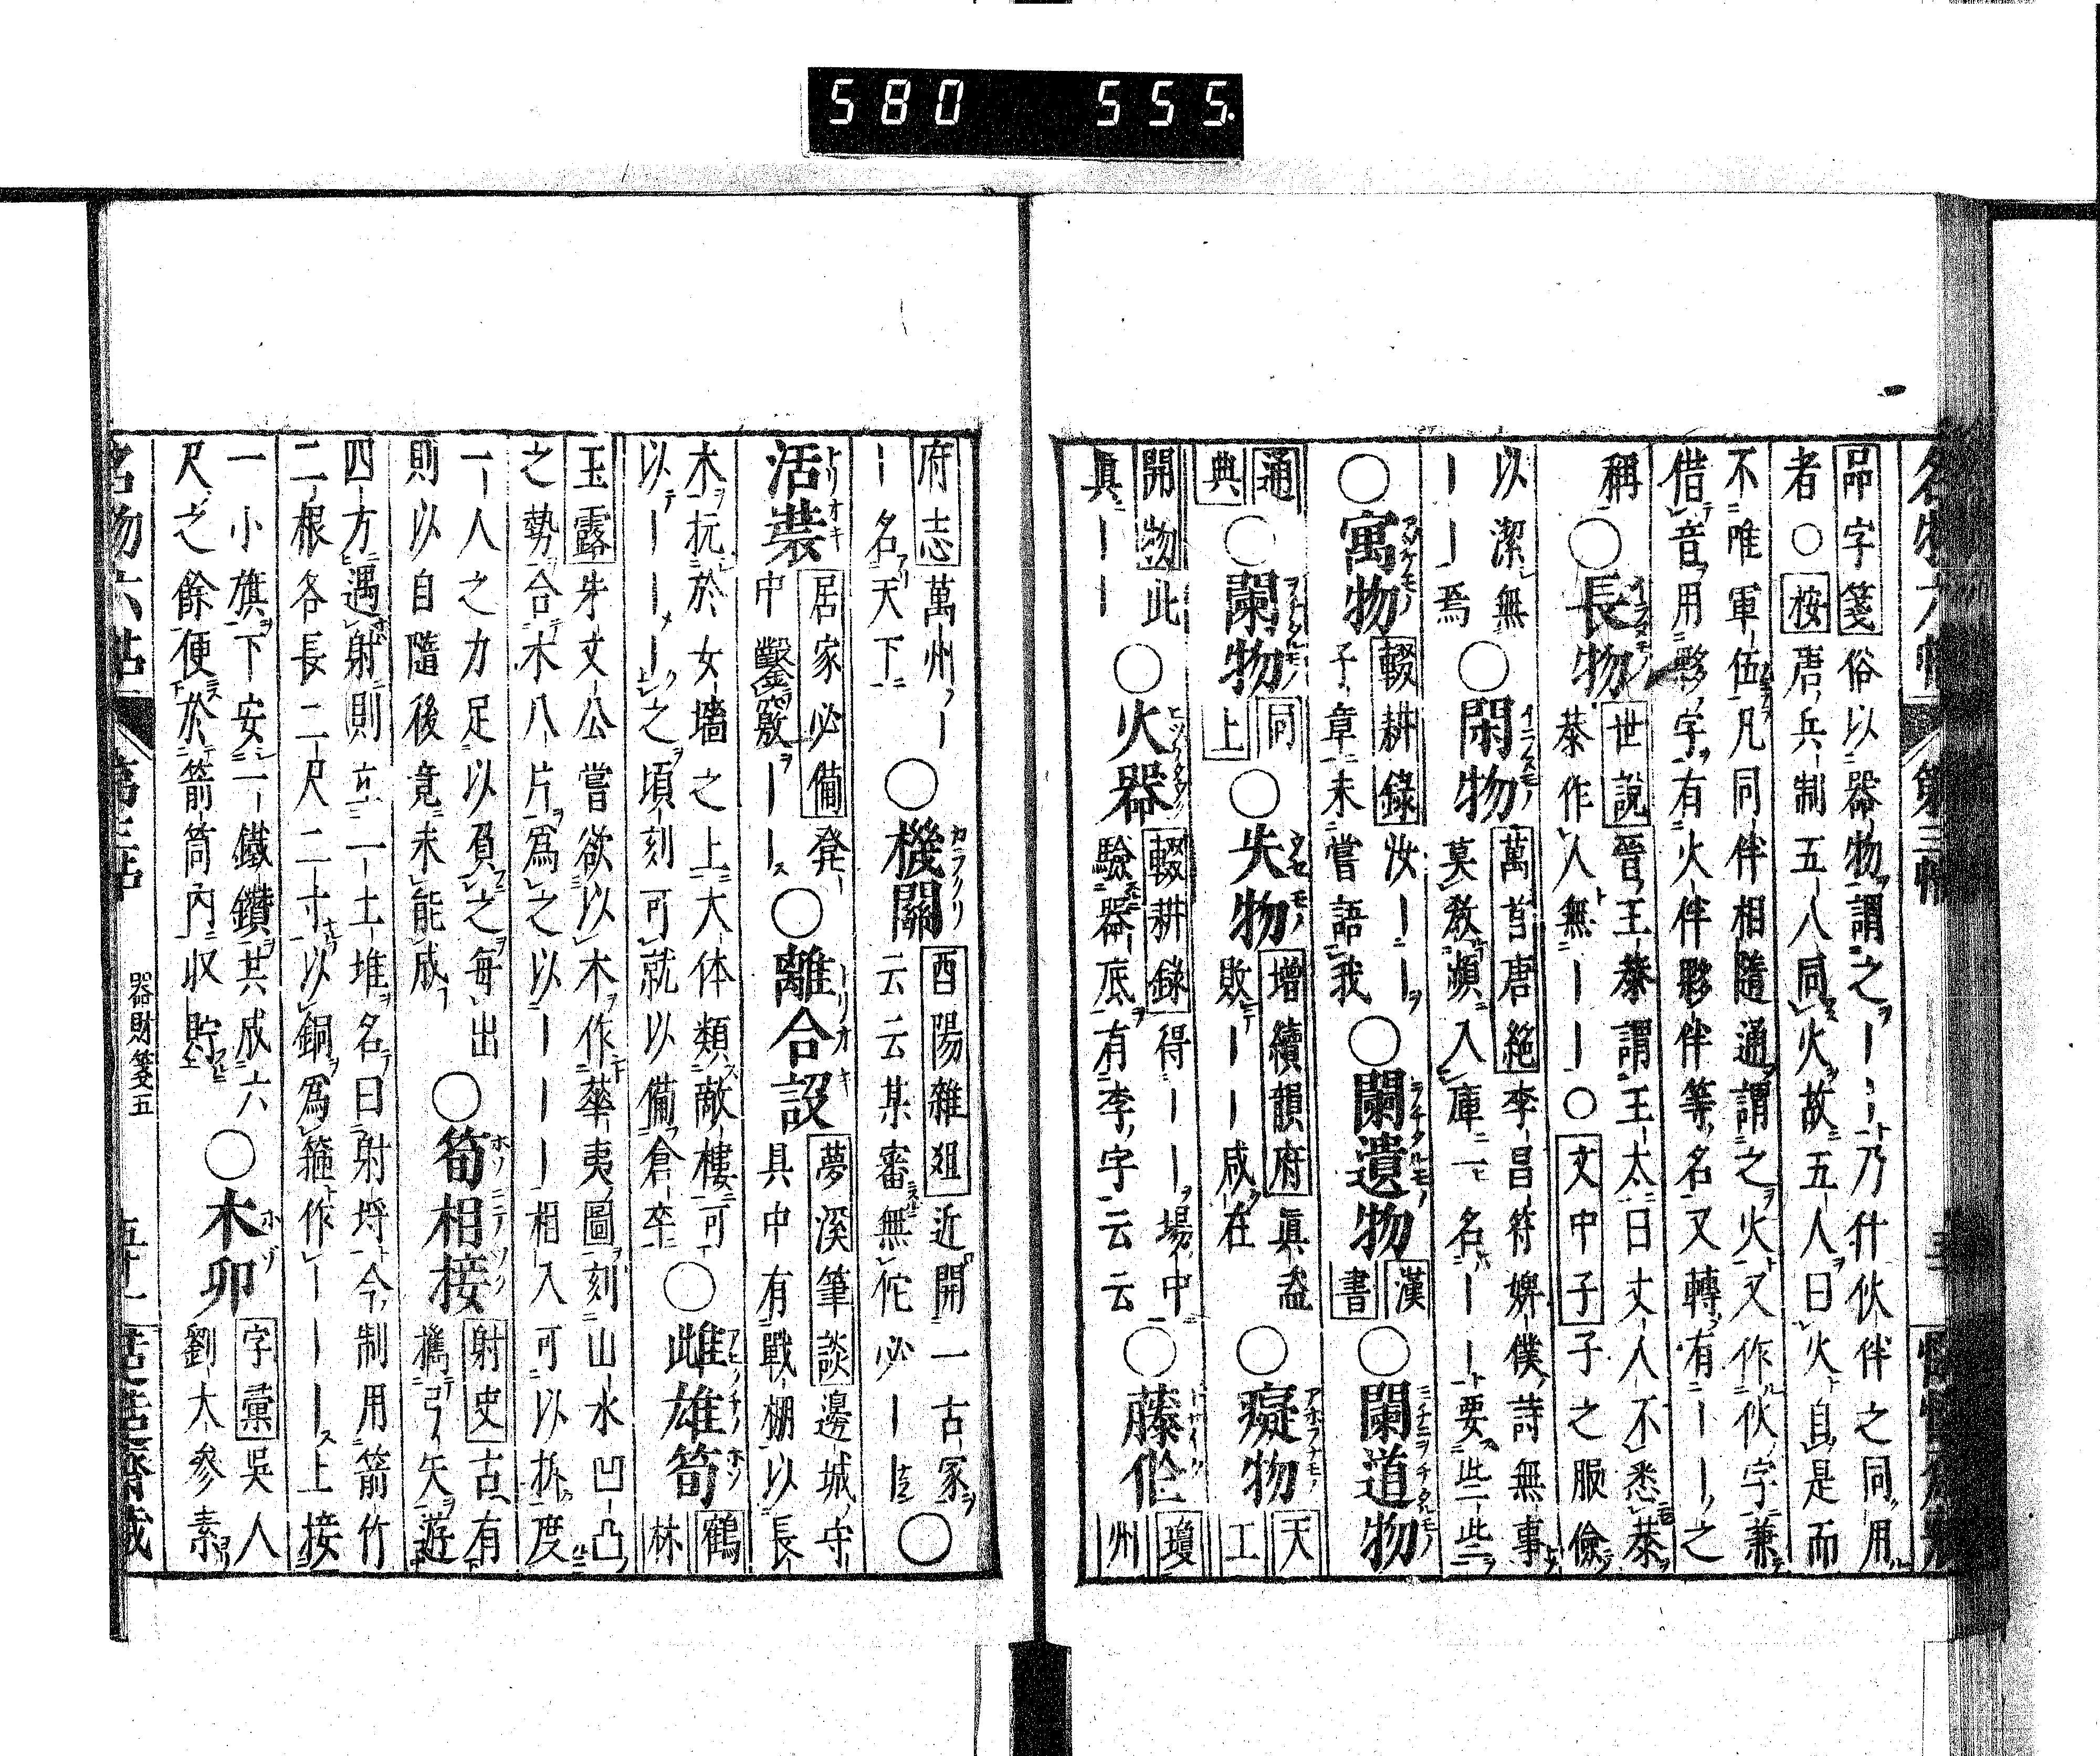 580 555.
品字箋俗以器物謂之――乃什伙伴之同用
者○按唐兵制五人同火故五人曰火自是而
不唯軍伍凡同伴相隨通謂之火又作伙字兼
借音用夥字有火伴夥伴等名又轉有――之
稱○長物世說晉王恭謂王太曰丈人不悉恭
恭作人無――○文中子子之服儉
以潔無
――焉○閑物萬首唐絶李昌符婢僕詩無事
莫教頻入庫一名――要些些
○寓物輟耕錄汝――
子章未嘗語我○闌遺物漢書○闌道物
通典○闌物同上○失物增續韻府眞盜
敗――咸在○癡物天工
開物此
眞――○火器輟耕錄得――場中
驗器底有李字云云○藤伦瓊州
府志萬州―
―名天下○機關酉陽雜俎近開一古冢
云云某審無佗必――○
活裝居家必備凳
中鑿金竅――○離合設夢溪筆談邊城守
具中有戰棚以長
木抗於女墻之上大体類敵樓可
以――――之頃刻可就以備倉卒○雌雄筍鶴林
玉露朱文公嘗欲以木作華夷圖刻山水凹凸
之勢合木八片爲之以―――相入可以拆度
一人之力足以負之每出
則以自隨後竟未能成○筍相接射史古有
檇引矢遊
四方遇射則立一土堆名曰射埓今制用箭竹
二根各長二尺二寸以銅爲箍作―――上接
一小旗下安一鐵鑽共成六
尺之餘便於箭筒内收貯○木卯字彙吳人
劉大參素
名物六帖 第三帖 器財箋五 五十一